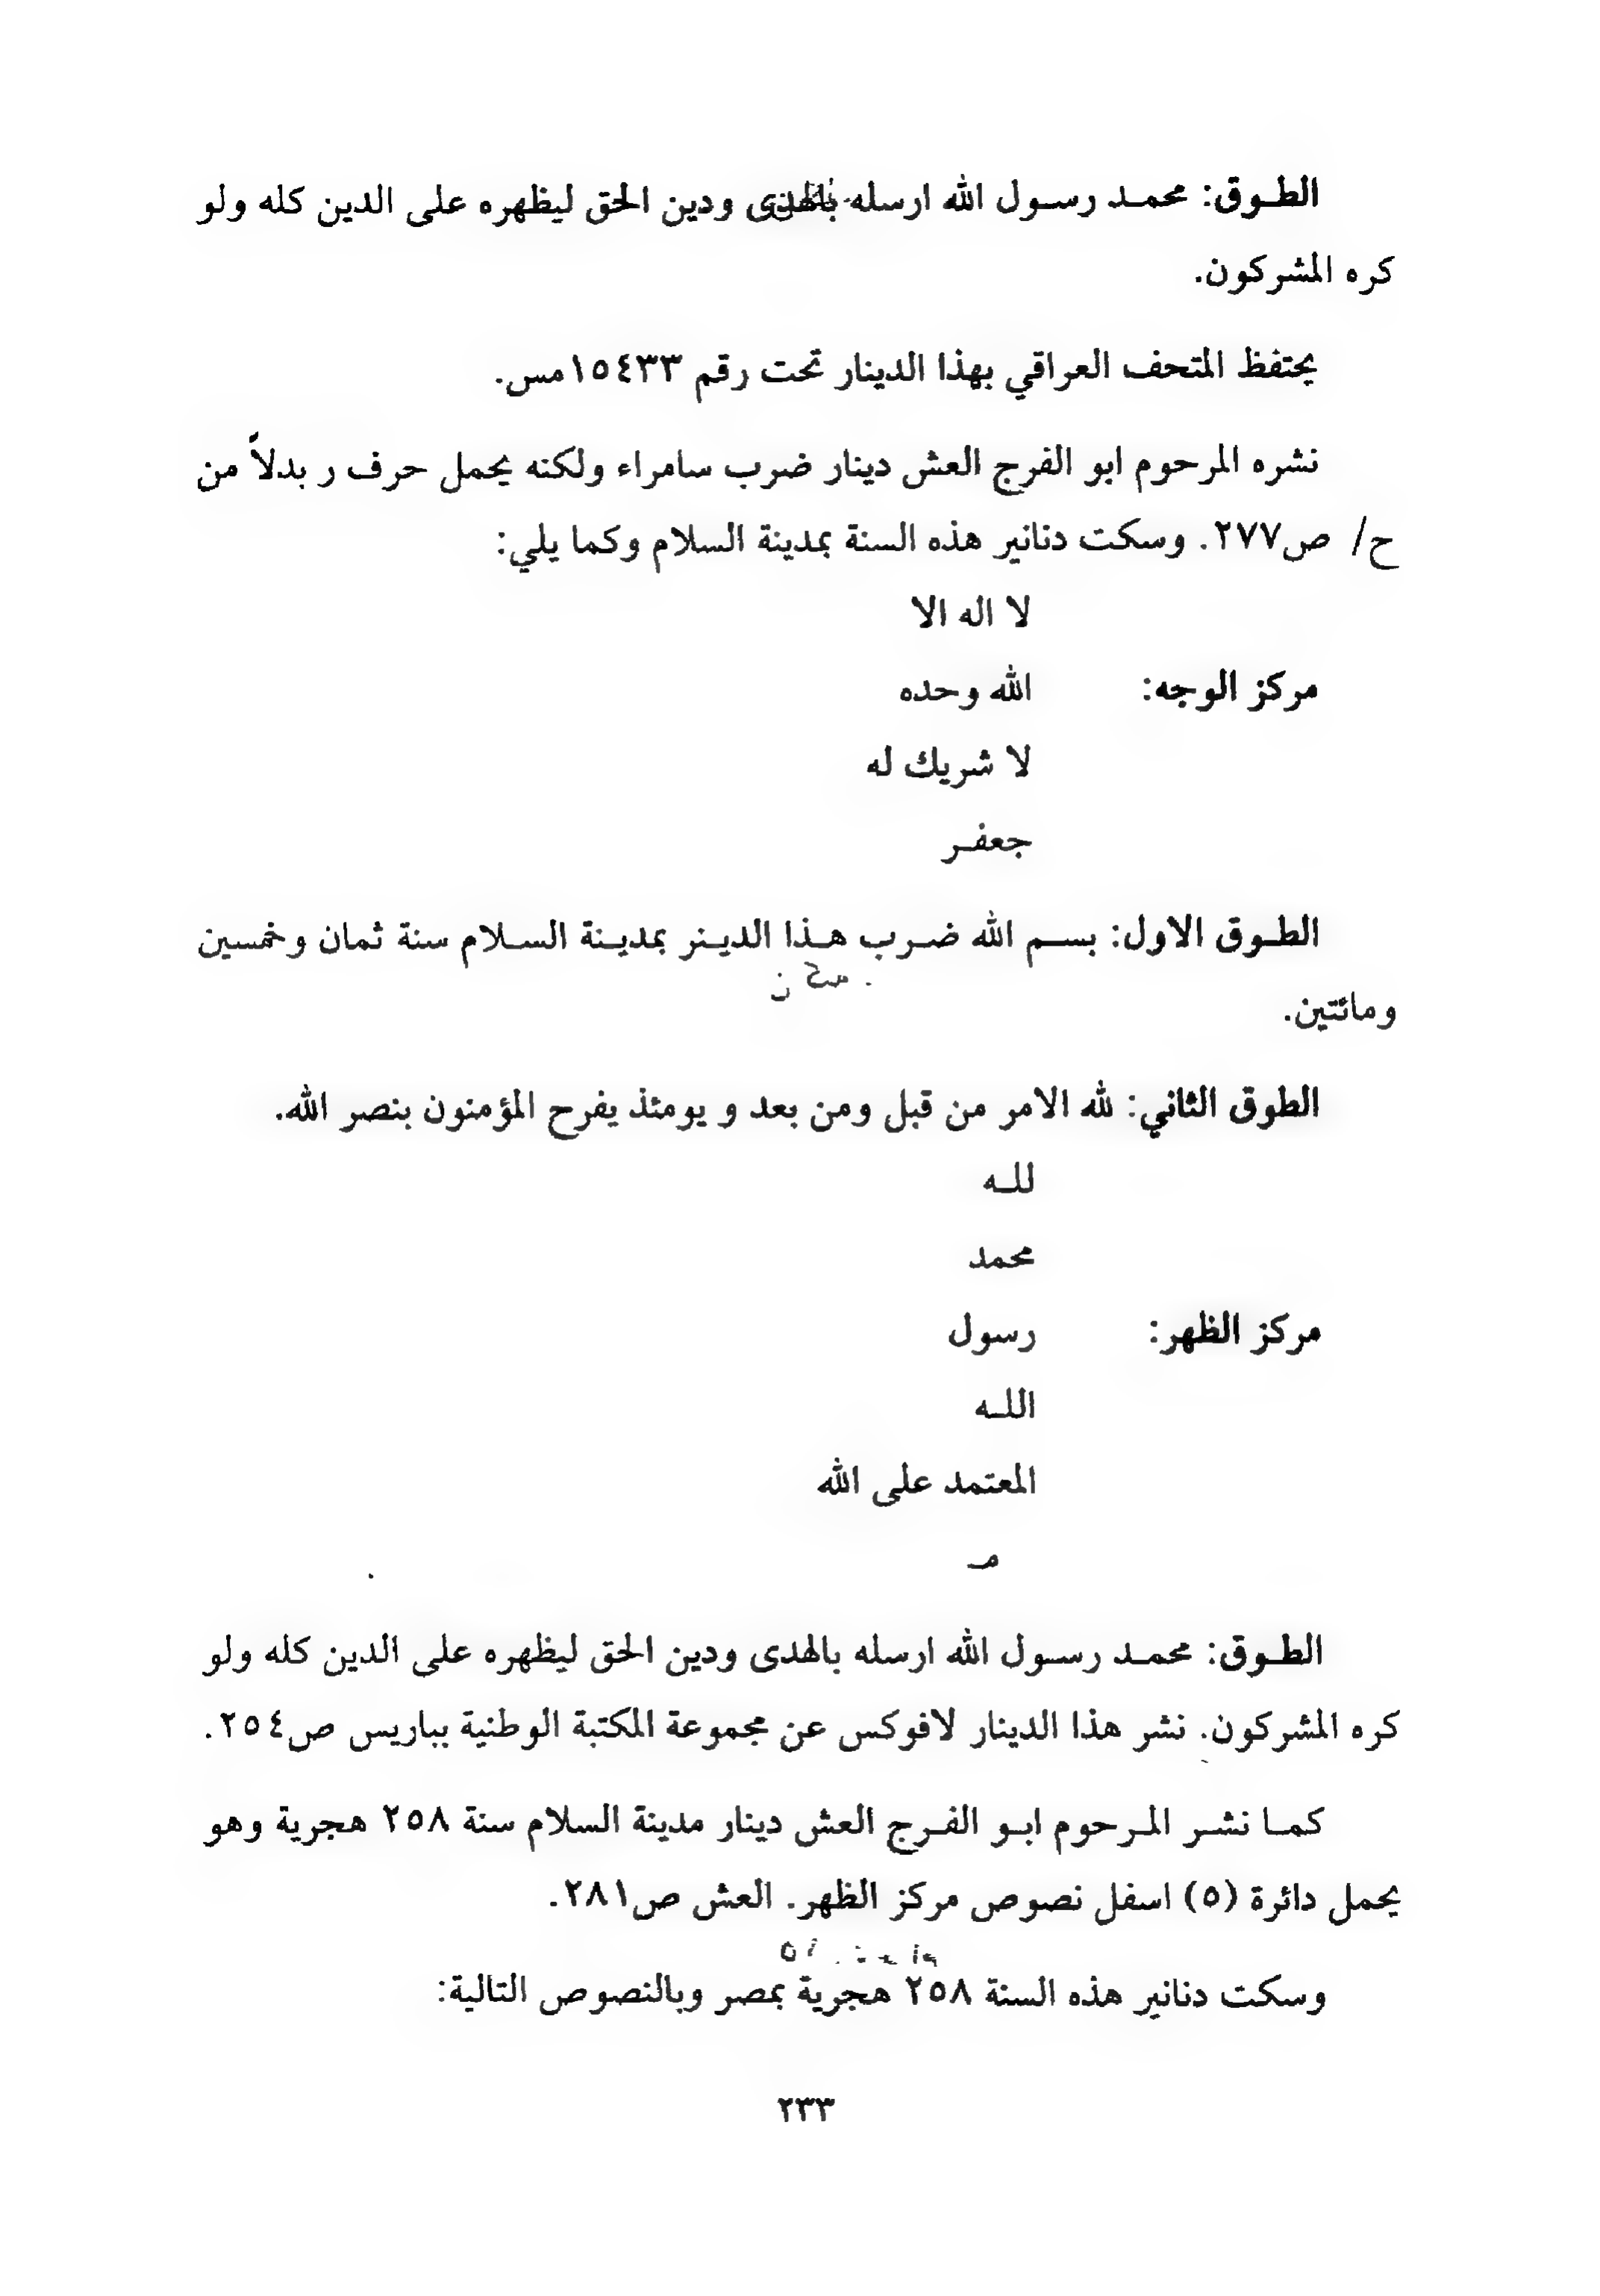 الطوق: محمد رسول الله ارسله بالهدى ودين الحق ليظهره على الدين كله ولو
كره المشركون.
يحتفظ المتحف العراقي بهذا الدينار تحت رقم ١٥٤٣٣مس.
نشره المرحوم ابو الفرج العش دينار ضرب سامراء ولكنه يحمل حرف ر بدلاً من
ح/ ص٢٧٧. وسكت دنانير هذه السنة بمدينة السلام وكما يلي:
لا اله الا
مركز الوجه: الله وحده
لا شريك له
جعفر
الطوق الاول: بسم الله ضرب هذا الدينر بمدينة السلام سنة ثمان وخمسين
ومائتين.
الطوق الثاني: لله الامر من قبل ومن بعد و يومئذ يفرح المؤمنون بنصر الله.
لله
محمد
مركز الظهر: رسول
الله
المعتمد على الله
مـ
الطوق: محمد رسول الله ارسله بالهدى ودين الحق ليظهره على الدين كله ولو
كره المشركون. نشر هذا الدينار لافوكس عن مجموعة المكتبة الوطنية بباريس ص٢٥٤.
كما نشر المرحوم ابو الفرج العش دينار مدينة السلام سنة ٢٥٨ هجرية وهو
يحمل دائرة (٥) اسفل نصوص مركز الظهر. العش ص٢٨١.
وسكت دنانير هذه السنة ٢٥٨ هجرية بمصر وبالنصوص التالية:
٢٣٣